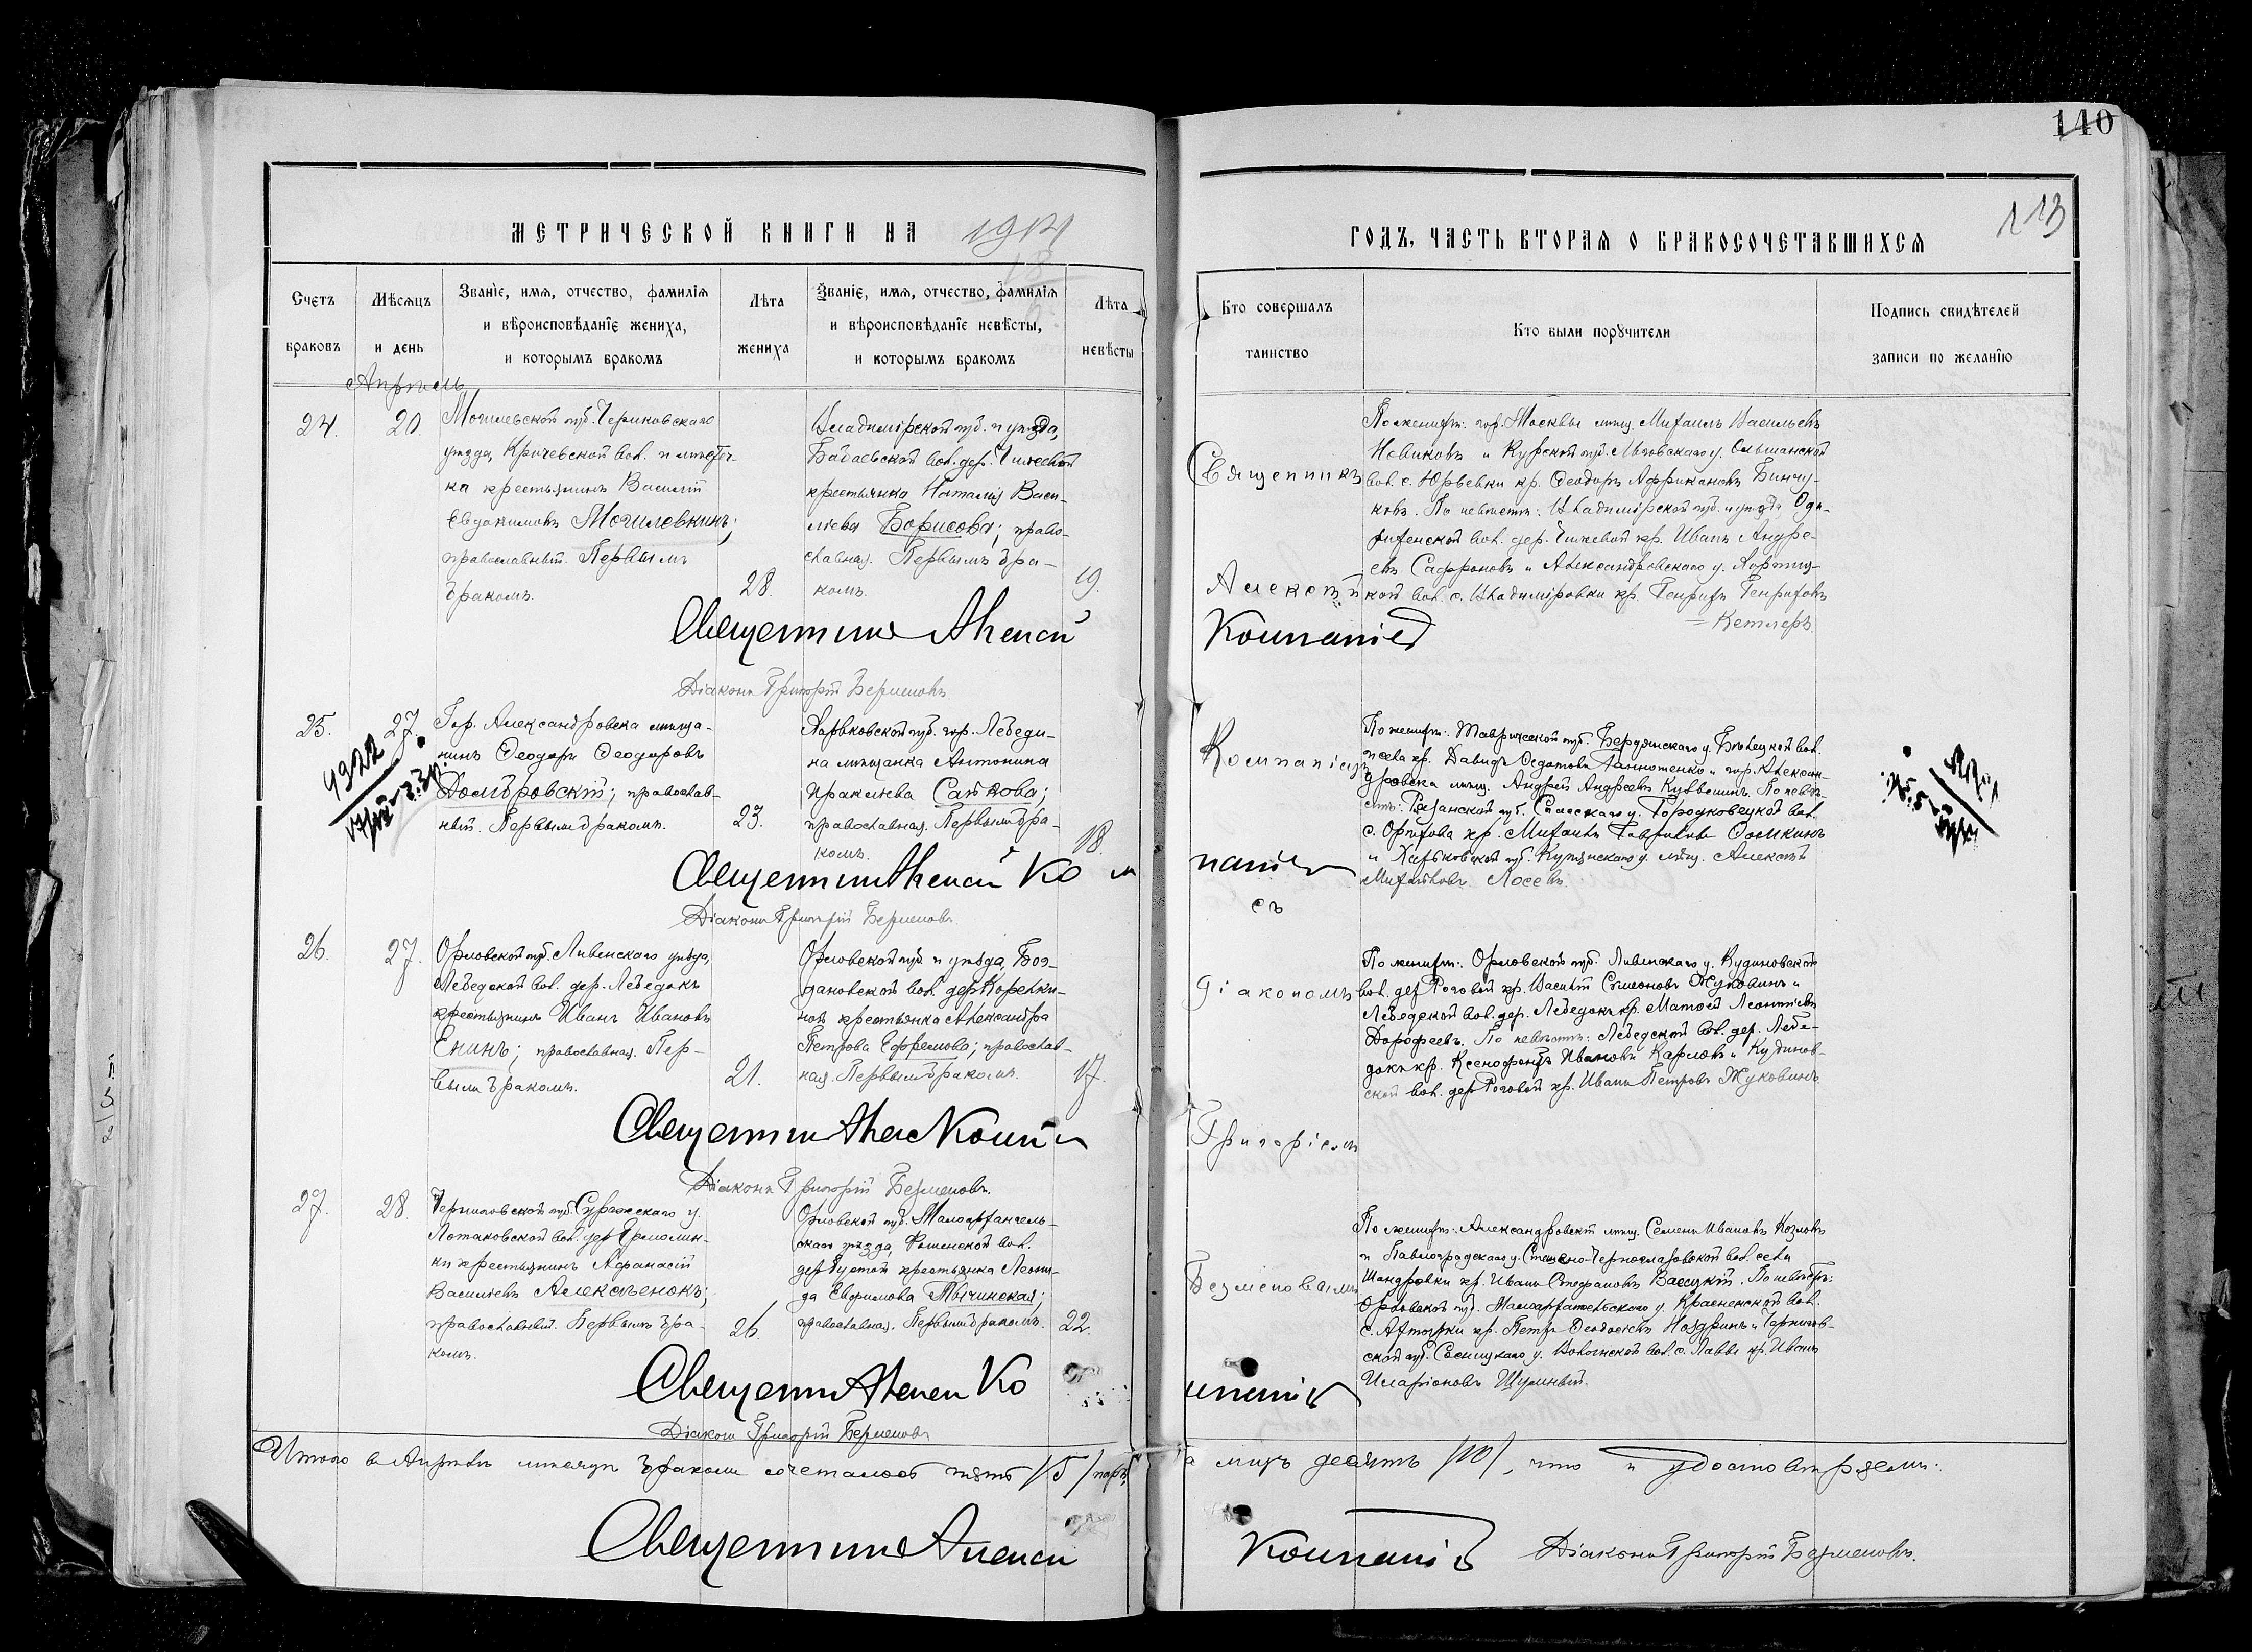 140
113
МЕТРИЧЕСКОЙ КНИГИ НА 1914
ГОДЪ, ЧАСТЬ ВТОРАЯ О БРАКОСОЧЕТАВШИХСЯ
Счетъ браковъ
Мѣсяцъ и день
Званіе, имя, отчество, фамилія
и вѣроисповѣданіе жениха,
и которымъ бракомъ
Лѣта жениха
Званіе, имя, отчество, фамилія
и вѣроисповѣданіе невѣсты,
и которымъ бракомъ
Лѣта невѣсты
Кто совершалъ таинство
Кто были поручители
Подпись свидѣтелей
записи по желанію
Апрѣль
24.
20.
Могилевской губ. Чериковскаго
уѣзда, Кричевской вол. и мѣстеч-
ка крестьянинъ Василій
Евдокимовъ Могилевкинъ;
православный. Первымъ
бракомъ.
28.
Владимірской губ. и уѣзда,
Бабаевской вол. дер.
крестьянка Наталія Васи-
льева Борисова; право-
славная. Первымъ бра-
комъ.
19.
Священникъ
Алексѣй
По женихѣ: гор. Москвы мѣщ. Михаилъ Васильевъ
Новиковъ и Курской губ. Льговскаго у. Ольшанской
вол. с. Юрьевки кр. Ѳеодоръ Африкановъ Бинчу-
ковъ. По невѣстѣ: Владимірской губ. и уѣзда Оди-
вол. дер. кр. Иванъ Андре-
евъ Сафроновъ и Александровскаго у. Хортиц-
кой вол. с. Владиміровки кр. Генрихъ Генриховъ
Кетлеръ.
Священникъ Алексѣй Компаніец
Діаконъ Григорій Безменовъ
25.
27.
4322
Гор. Александровска мѣща-
нинъ Ѳеодоръ Ѳеодоровъ
Домбровскій; православ-
ный. Первымъ бракомъ.
23.
Харьковской губ. гор. Лебеди-
на мѣщанка Антонина
Ираклиева Сайкова;
православная. Первымъ бра-
комъ.
18.
Компаніец
По женихѣ: Таврической губ. Бердянскаго у. Бѣлецкой вол.
и села кр. Давидъ Ѳедотовъ и гор. Алексан-
дровска мѣщ. Андрей Андреевъ. По невѣ-
стѣ: Рязанской губ. Спасскаго у. Городковецкой вол.
с. кр. Михаилъ Гавриловъ Сошкинъ
и Харьковской губ. Купянскаго у. мѣщ. Алексѣй
Михайловъ Лосевъ.
Священник Алексѣй Компаніец
съ
Діаконъ Григорій Безменовъ.
26.
27.
Орловской губ. Ливенскаго уѣзда,
Лебедской вол. дер. Лебедокъ
крестьянинъ Иванъ Ивановъ
Енинъ; православная. Пер-
вымъ бракомъ.
21.
Орловской губ. и уѣзда, Бог-
дановской вол. дер.
крестьянка Александра
Петрова Ефремова; православ-
ная. Первымъ бракомъ.
17.
діакономъ
По женихѣ: Орловской губ. Ливенскаго у. Кудиновской
вол. дер. Роговой кр. Василій Симеоновъ Жуковинъ и
Лебедской вол. дер. Лебедокъ кр. Матѳей Леонтіевъ
Дорофеевъ. По невѣстѣ: Лебедской вол. дер. Лебе-
докъ кр. Ксенофонтъ Ивановъ Карловъ и Кудинов-
ской вол. дер. Роговой кр. Иванъ Петровъ Жуковинъ.
Григоріемъ
Діаконъ Григорій Безменовъ.
27.
28.
Черниговской губ. Суражскаго у.
Лотаковской вол. дер. Ермолин-
ки крестьянинъ Афанасій
Васильевъ Алексѣенокъ;
православный. Первымъ бра-
комъ.
26.
Орловской губ. Малоархангель-
скаго уѣзда, вол.
дер. Густой крестьянка Леони-
да Евфимова Тычинская;
православная. Первымъ бракомъ.
22.
Безменовымъ
По женихѣ: Александровскій мѣщ. Семенъ Ивановъ Козловъ
и Павлоградскаго у. вол. села
Шандровки кр. Иванъ Стефановъ Васецкій. По невѣстѣ:
Орловской губ. Малоархангельскаго у. Красненской вол.
с. кр. Петръ Ноздринъ и Чернигов-
ской губ. Сосницкаго у. Волынской вол. с. Лаввы кр. Иванъ
Иларіоновъ.
Діаконъ Григорій Безменовъ
Итого въ Апрѣлѣ мѣсяцѣ бракомъ сочеталось пять /5/ паръ,
а лицъ десять /10/, что и удостовѣряемъ:
Священникъ Алексѣй Компаніец Діаконъ Григорій Безменовъ.